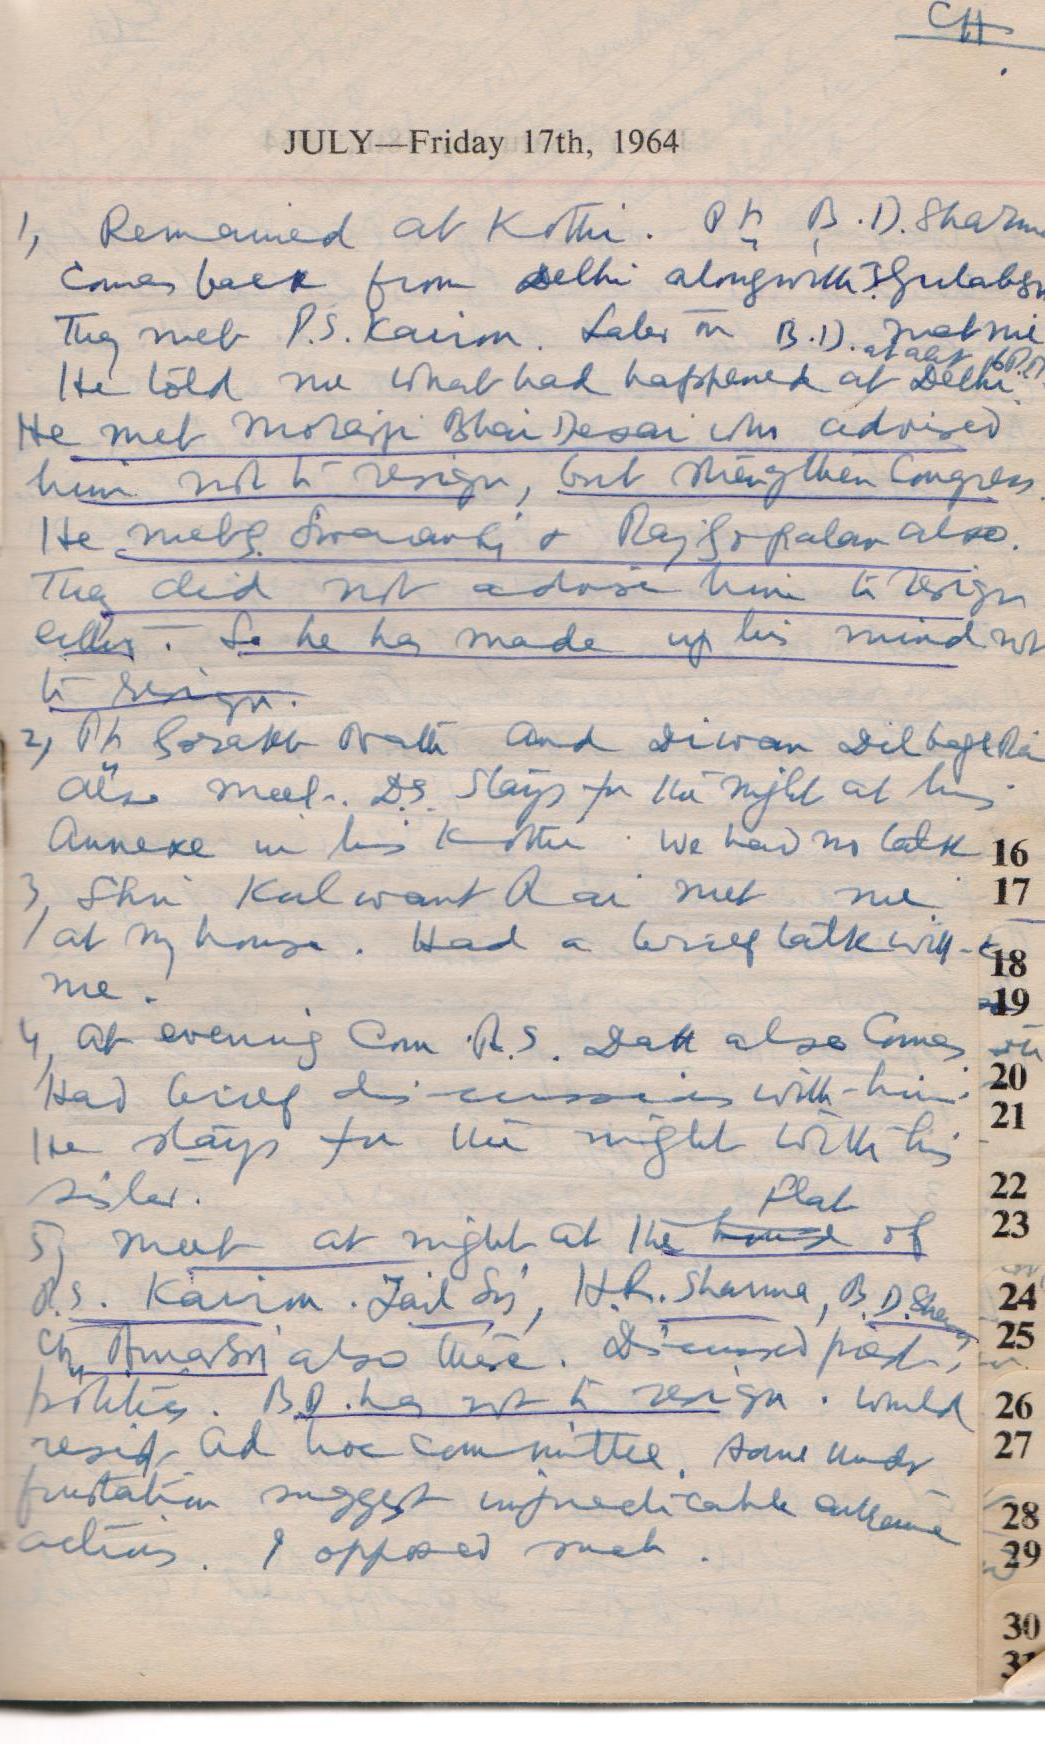 CH
JULY—Friday 17th, 1964
1, Remained at Kothi. Pt B.D. Sharma
Comes back from Delhi alongwith
They met P.S. Kairon. Later on B.D. met me
He told me what had happened at Delhi.
He met Morarji Bhai Desai who advised
him not to resign, but strengthen Congress.
He met also.
They did not advise him to resign
either. So he has made up his mind not
to resign.
2, Pt Gorakh Nath and Diwan Dilbagh Rai
also meet. D.S. Stays for the night at his
Annexe in his Kothi. We had no talk
3, Shri Kulwant Rai met me
at my house. Had a brief talk with
me.
4, At evening Com R.S. Datt also Comes
Had brief discussions with him.
He stays for the night with his
sister.
Flat
5, meet at night at the house of
P.S. Kairon. Jail Si, H.R. Sharma, B.D. Sharma
Ch, Amar Si also there. Discussed
politics. B.D. has not to resign. Would
resist Ad hoc Committee. Some under
frustation suggest
actions. I opposed such.
16
17
18
19
20
21
22
23
24
25
26
27
28
29
30
31